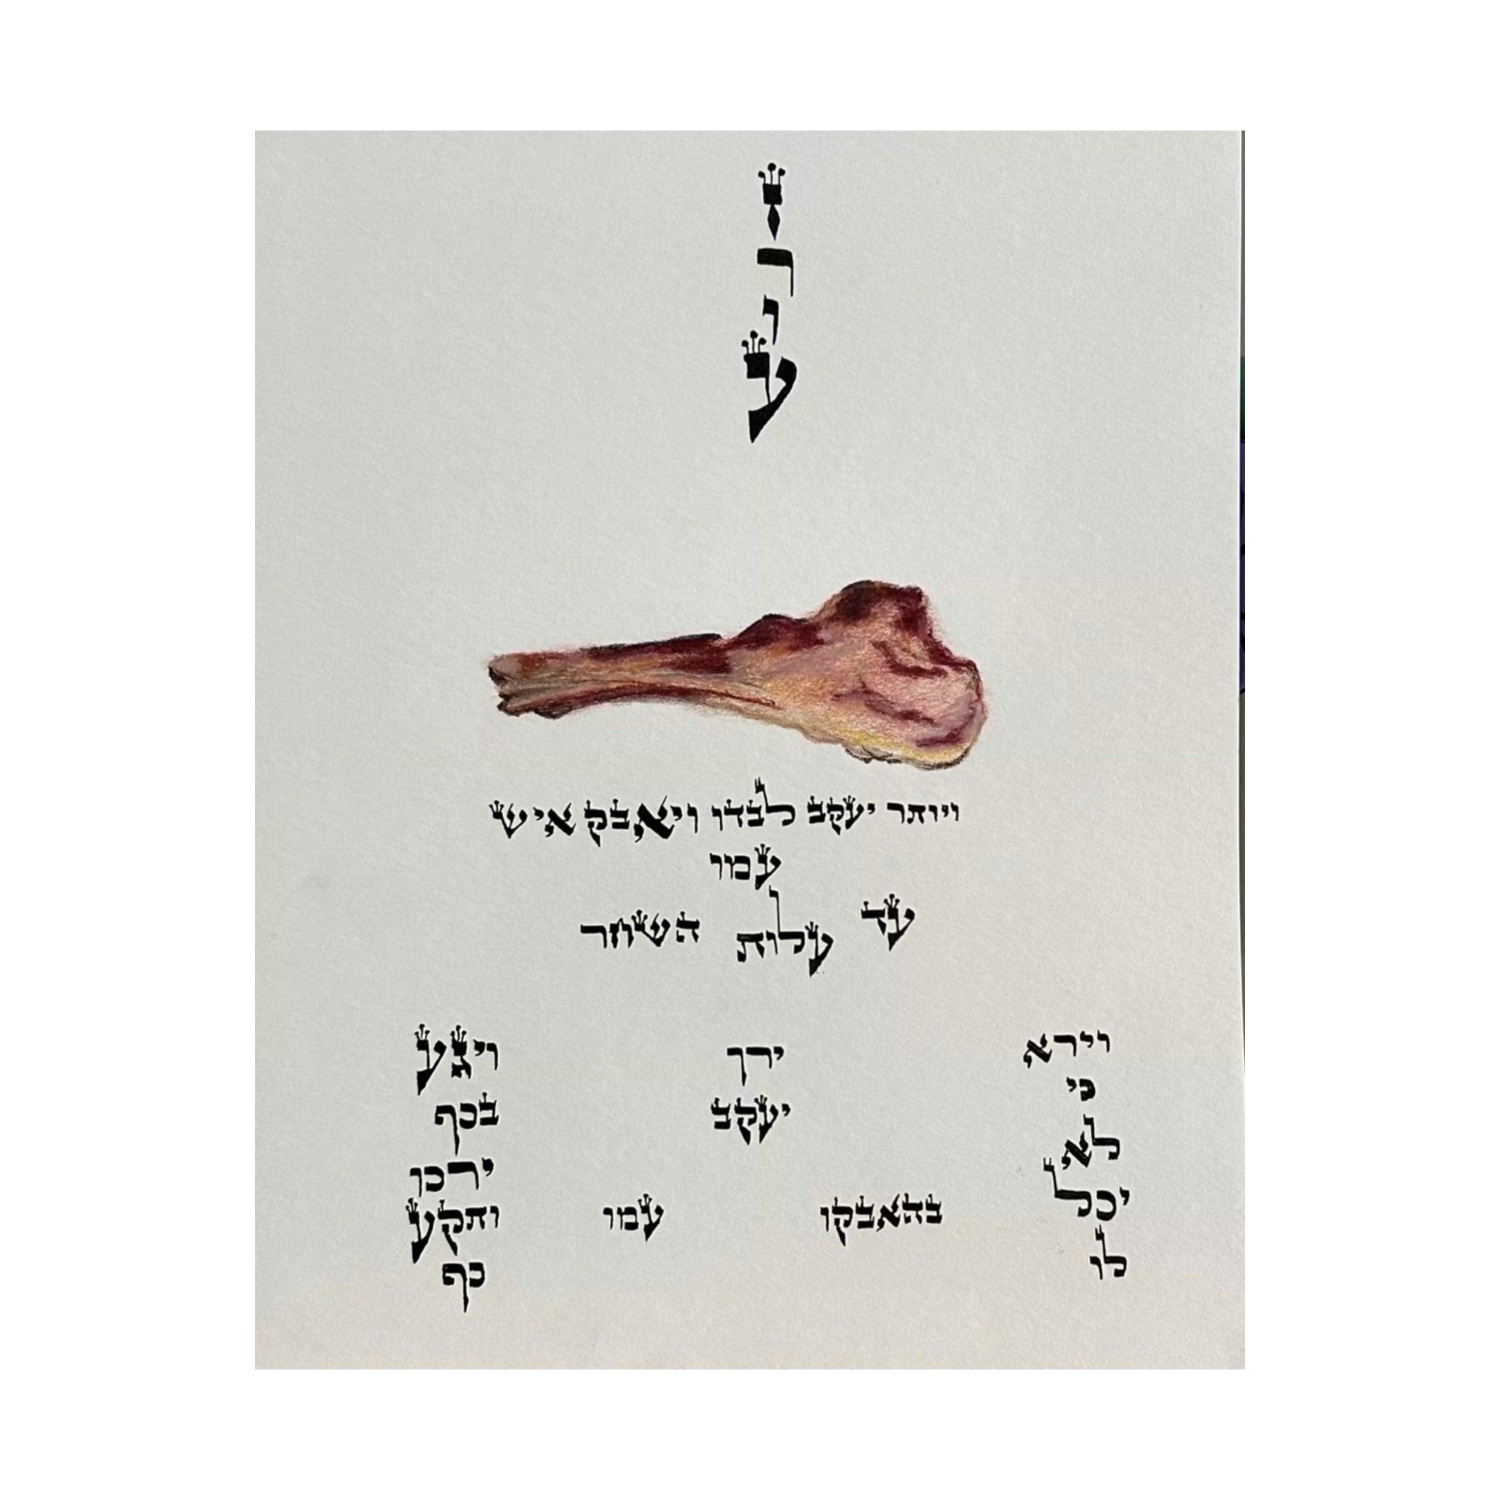 ז
ר
ו
ע
ויותר יעקב לבדו ויאבק איש
עמו
עד עלות השחר
וירא
כי
לא
יכל
לו
ויגע
בכף
ירכו
ותקע
כף
ירך
יעקב
בהאבקו עמו